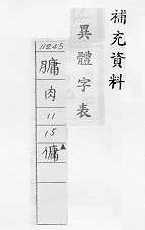 補充資料
異體字表
11245
肉
11
15
傭▲